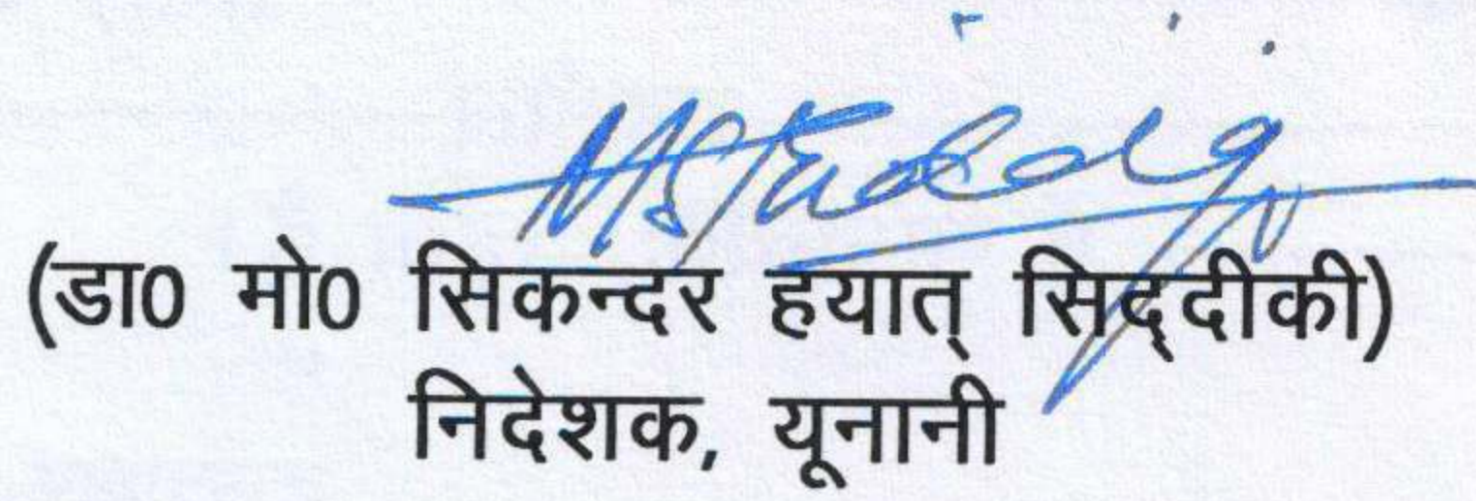 (डा0 मो0 सिकन्दर हयात् सिद्दीकी)
निदेशक, यूनानी